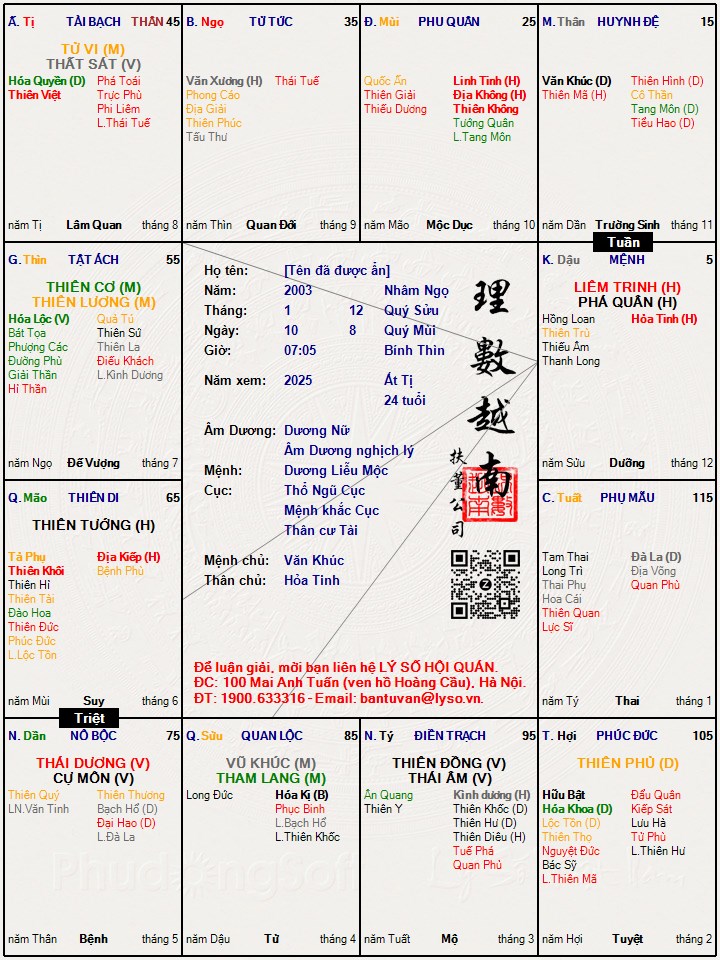 Ấ. Tị TÀI BẠCH THÂN 45
TỬ VI (M)
THẤT SÁT (V)
Hóa Quyền (D) Phá Toái
Thiên Việt Trực Phù
Phi Liêm
L.Thái Tuế
năm Tị Lâm Quan tháng 8
B. Ngọ TỬ TỨC 35
Văn Xương (H) Thái Tuế
Phong Cáo
Địa Giải
Thiên Phúc
Tấu Thư
năm Thìn Quan Đới tháng 9
Đ. Mùi PHU QUÂN 25
Quốc Ấn Linh Tinh (H)
Thiên Giải Địa Không (H)
Thiếu Dương Thiên Không
Tướng Quân
L.Tang Môn
năm Mão Mộc Dục tháng 10
M. Thân HUYNH ĐỆ 15
Văn Khúc (D) Thiên Hình (D)
Thiên Mã (H) Cô Thần
Tang Môn (D)
Tiểu Hao (D)
năm Dần Trường Sinh tháng 11
Tuần
G. Thìn TẬT ÁCH 55
THIÊN CƠ (M)
THIÊN LƯƠNG (M)
Hóa Lộc (V) Quả Tú
Bát Tọa Thiên Sứ
Phượng Các Thiên La
Đường Phù Điếu Khách
Giải Thần L.Kình Dương
Hỉ Thần
năm Ngọ Đế Vượng tháng 7
Họ tên: [Tên đã được ẩn]
Năm: 2003 Nhâm Ngọ
Tháng: 1 12 Quý Sửu
Ngày: 10 8 Quý Mùi
Giờ: 07:05 Bính Thìn
Năm xem: 2025 Ất Tị
24 tuổi
Âm Dương: Dương Nữ
Âm Dương nghịch lý
Mệnh: Dương Liễu Mộc
Cục: Thổ Ngũ Cục
Mệnh khắc Cục
Thân cư Tài
Mệnh chủ: Văn Khúc
Thân chủ: Hỏa Tinh
理數越南
扶董公司
Để luận giải, mời bạn liên hệ LÝ SỐ HỘI QUÁN.
ĐC: 100 Mai Anh Tuấn (ven hồ Hoàng Cầu), Hà Nội.
ĐT: 1900.633316 - Email: bantuvan@lyso.vn.
K. Dậu MỆNH 5
LIÊM TRINH (H)
PHÁ QUÂN (H)
Hồng Loan Hỏa Tinh (H)
Thiên Trù
Thiếu Âm
Thanh Long
năm Sửu Dưỡng tháng 12
Q. Mão THIÊN DI 65
THIÊN TƯỚNG (H)
Tả Phụ Địa Kiếp (H)
Thiên Khôi Bệnh Phù
Thiên Hỉ
Thiên Tài
Đào Hoa
Thiên Đức
Phúc Đức
L.Lộc Tồn
năm Mùi Suy tháng 6
Triệt
C. Tuất PHỤ MẪU 115
Tam Thai Đà La (D)
Long Trì Địa Võng
Thai Phụ Quan Phù
Hoa Cái
Thiên Quan
Lực Sĩ
năm Tý Thai tháng 1
N. Dần NÔ BỘC 75
THÁI DƯƠNG (V)
CỰ MÔN (V)
Thiên Quý Thiên Thương
LN.Văn Tinh Bạch Hổ (D)
Đại Hao (D)
L.Đà La
năm Thân Bệnh tháng 5
Q. Sửu QUAN LỘC 85
VŨ KHÚC (M)
THAM LANG (M)
Long Đức Hóa Kị (B)
Phục Binh
L.Bạch Hổ
L.Thiên Khốc
năm Dậu Tử tháng 4
N. Tý ĐIỀN TRẠCH 95
THIÊN ĐỒNG (V)
THÁI ÂM (V)
Ân Quang Kình dương (H)
Thiên Y Thiên Khốc (D)
Thiên Hư (D)
Thiên Diêu (H)
Tuế Phá
Quan Phủ
năm Tuất Mộ tháng 3
T. Hợi PHÚC ĐỨC 105
THIÊN PHỦ (D)
Hữu Bật Đẩu Quân
Hóa Khoa (D) Kiếp Sát
Lộc Tồn (D) Lưu Hà
Thiên Thọ Tử Phù
Nguyệt Đức L.Thiên Hư
Bác Sỹ
L.Thiên Mã
năm Hợi Tuyệt tháng 2